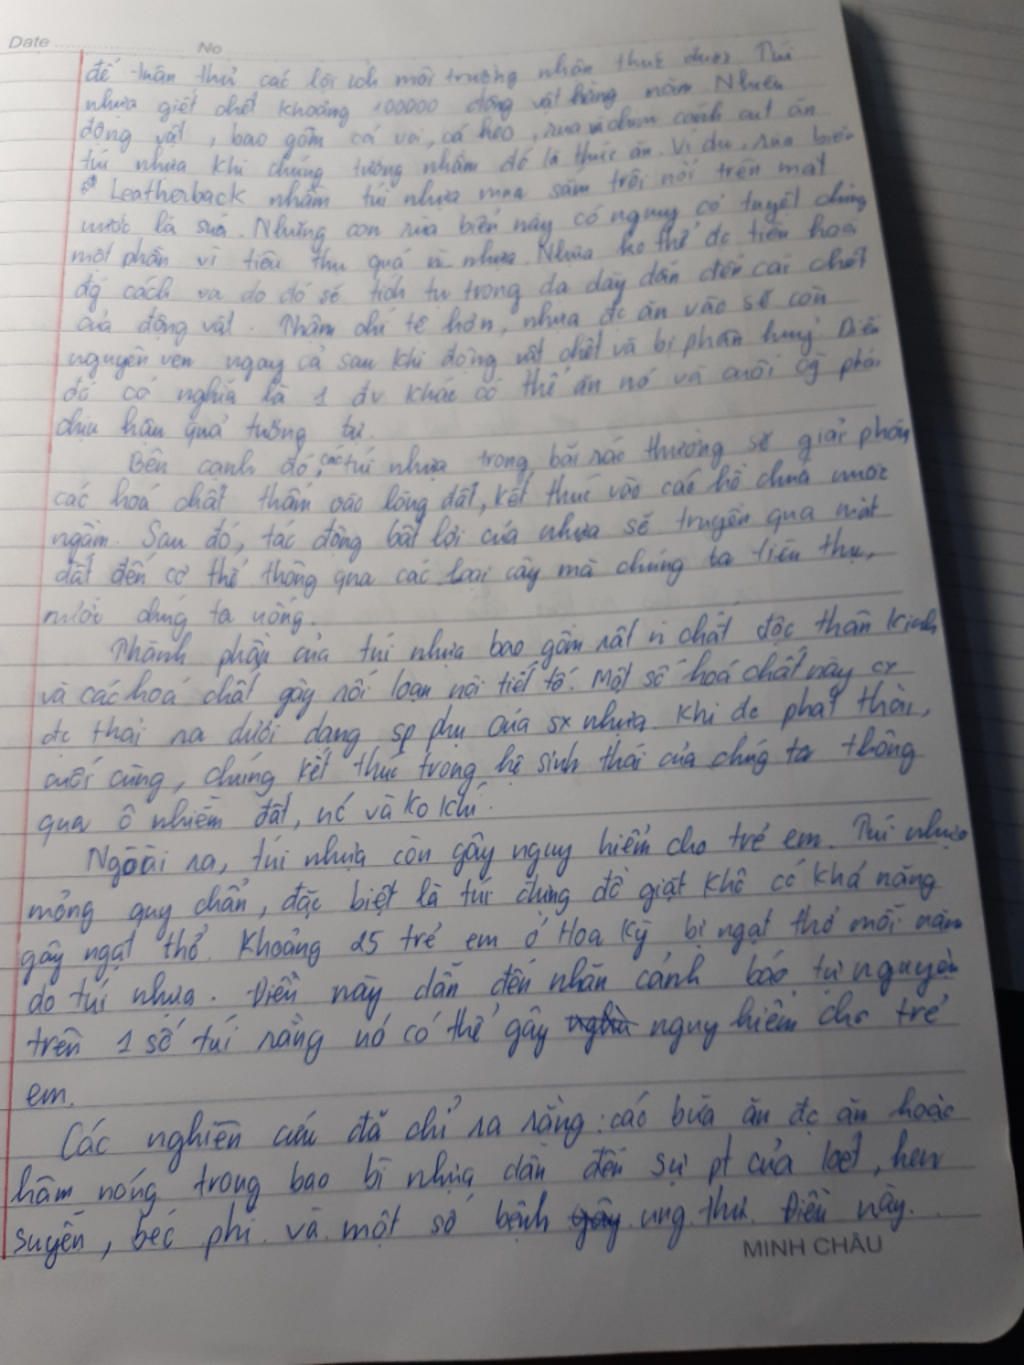 Date No
để tuân thủ các lợi ích môi trường nhận thức được Túi
nhựa giết chết khoảng 100000 động vật hàng năm. Nhiều
động vật, bao gồm cá voi, cá heo, rùa chim cánh cụt ăn
túi nhựa khi chúng tưởng nhầm đó là thức ăn. Ví dụ, rùa biển
Leatherback nhầm túi nhựa mua sắm trôi nổi trên mặt
nước là sứa. Những con rùa biển này có nguy cơ tuyệt chủng
một phần vì tiêu thụ quá n nhựa. Nhựa ko thể đc tiêu hoá
đg cách và do đó sẽ tích tụ trong dạ dày dẫn đến cái chết
của động vật. Thậm chí tệ hơn, nhựa đc ăn vào sẽ còn
nguyên vẹn ngay cả sau khi động vật chết và bị phân huỷ. Điều
đó có nghĩa là 1 đv khác có thể ăn nó và cuối cg phải
chịu hậu quả tương tự.
Bên cạnh đó, các túi nhựa trong bãi rác thường sẽ giải phóng
các hoá chất thấm vào lòng đất, kết thúc vào các hồ chứa nước
ngầm. Sau đó, tác động bất lợi của nhựa sẽ truyền qua mặt
đất đến cơ thể thông qua các loại cây mà chúng ta tiêu thụ,
nước chúng ta uống.
Thành phần của túi nhựa bao gồm rất n chất độc thần kinh
và các hoá chất gây rối loạn nội tiết tố. Một số hoá chất này cx
đc thải ra dưới dạng sp phụ của sx nhựa. Khi đc phát thải,
cuối cùng, chúng kết thúc trong hệ sinh thái của chúng ta thông
qua ô nhiễm đất, nc và ko khí.
Ngoài ra, túi nhựa còn gây nguy hiểm cho trẻ em. Túi nhựa
mỏng quy chẩn, đặc biệt là túi đựng đồ giặt khô có khả năng
gây ngạt thở. Khoảng 25 trẻ em ở Hoa Kỳ bị ngạt thở mỗi năm
do túi nhựa. Điều này dẫn đến nhãn cảnh báo tự nguyện
trên 1 số túi rằng nó có thể gây nguy hiểm cho trẻ
em.
Các nghiên cứu đã chỉ ra rằng: các bữa ăn đc ăn hoặc
hâm nóng trong bao bì nhựa dẫn đến sự pt của loét, hen
suyễn, béo phì và một số bệnh ung thư. Điều này.
MINH CHÂU